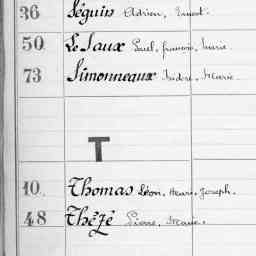 36 Séguin Adrien, Ernest.
50 Le Saux Paul, françois, Marie.
73 Simonneaux André, Marie.
T
10 Thomas Léon, Henri, Joseph.
48 Thézé Pierre, Marie.